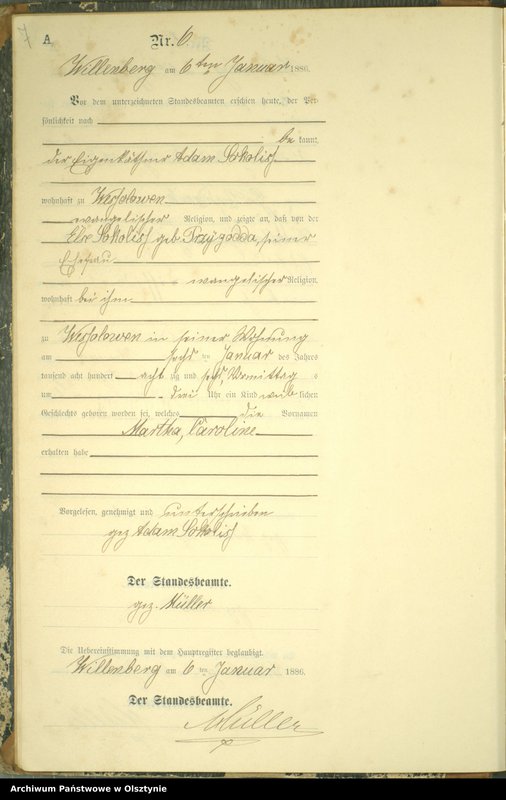 7
A
Nr. 6
Willenberg am 6 ten Januar 1886.
Vor dem unterzeichneten Standesbeamten erschien heute, der Per-
sönlichkeit nach
be kannt,
der Eigenkäthner Adam Sokolish
wohnhaft zu
evangelischer Religion, und zeigte an, daß von der
Else Sokolish geb. Przygodda, seiner
Ehefrau
evangelischer Religion,
wohnhaft bei ihm
zu in seiner Wohnung
am sechs ten Januar des Jahres
tausend acht hundert acht zig und sechs, Vormittag s
um drei Uhr ein Kind weib lichen
Geschlechts geboren worden sei, welches die Vornamen
Martha, Caroline
erhalten habe
Vorgelesen, genehmigt und unterschrieben
gez Adam Sokolish
Der Standesbeamte.
gez. Müller
Die Uebereinstimmung mit dem Hauptregister beglaubigt.
Willenberg am 6 ten Januar 1886.
Der Standesbeamte.
Müller
Archiwum Państwowe w Olsztynie